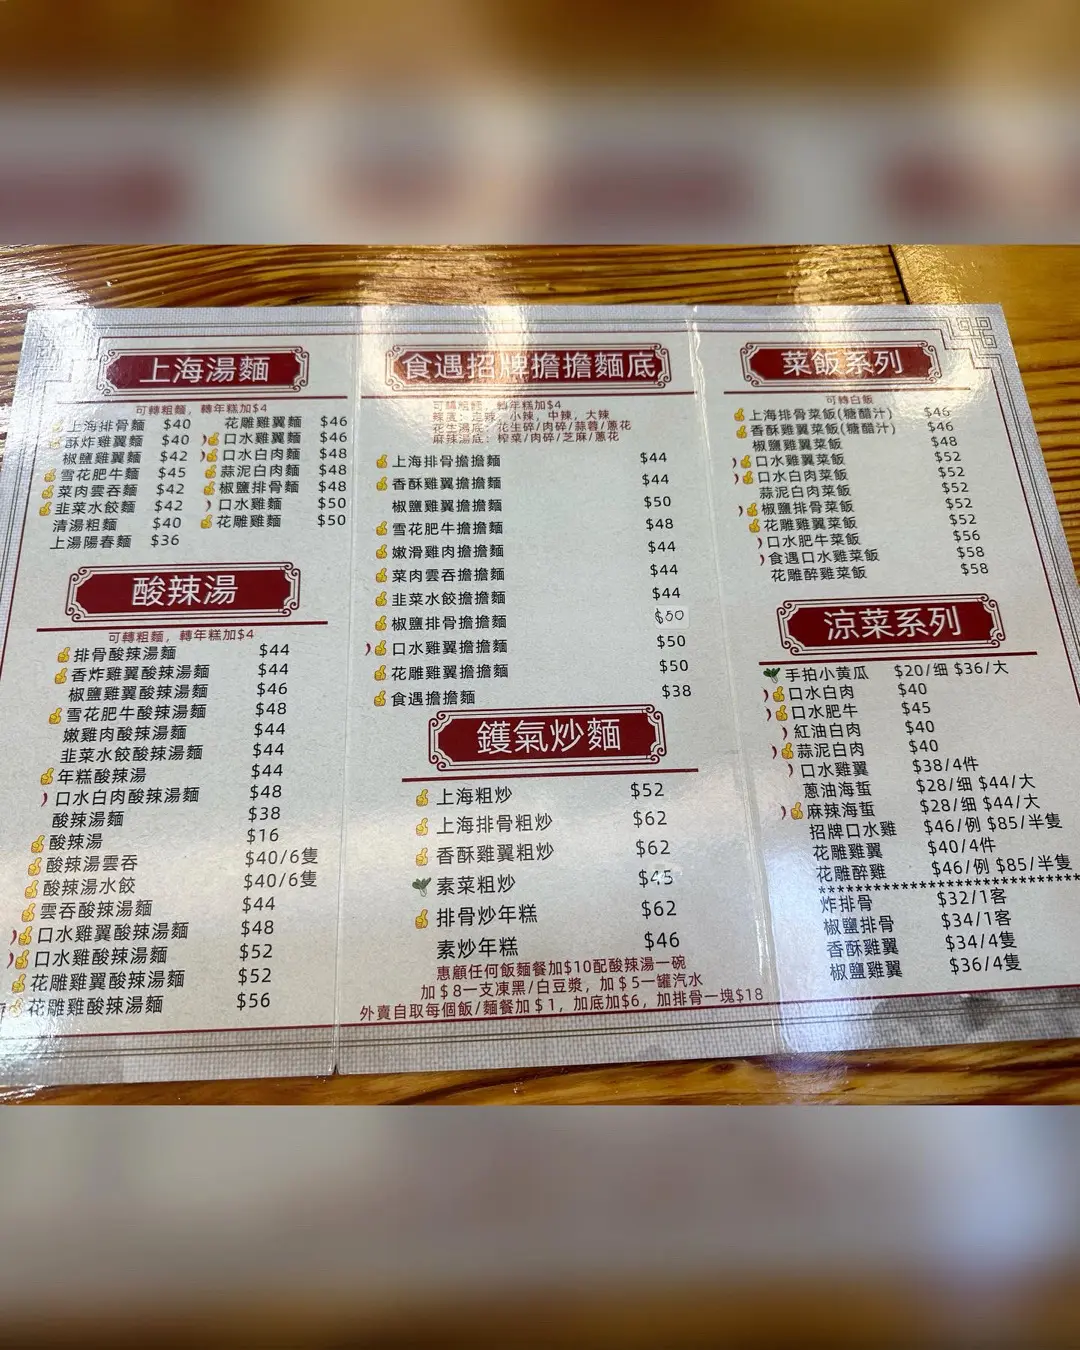 上海湯麵
可轉粗麵，轉年糕加$4
上海排骨麵 $40
酥炸雞翼麵 $40
椒鹽雞翼麵 $42
雪花肥牛麵 $45
菜肉雲吞麵 $42
韭菜水餃麵 $42
清湯粗麵 $40
上湯陽春麵 $36
花雕雞翼麵 $46
口水雞翼麵 $46
口水白肉麵 $48
蒜泥白肉麵 $48
椒鹽排骨麵 $48
口水雞麵 $50
花雕雞麵 $50
酸辣湯
可轉粗麵，轉年糕加$4
排骨酸辣湯麵 $44
香炸雞翼酸辣湯麵 $44
椒鹽雞翼酸辣湯麵 $46
雪花肥牛酸辣湯麵 $48
嫩雞肉酸辣湯麵 $44
韭菜水餃酸辣湯麵 $44
年糕酸辣湯 $44
口水白肉酸辣湯麵 $48
酸辣湯麵 $38
酸辣湯 $16
酸辣湯雲吞 $40/6隻
酸辣湯水餃 $40/6隻
雲吞酸辣湯麵 $44
口水雞翼酸辣湯麵 $48
口水雞酸辣湯麵 $52
花雕雞翼酸辣湯麵 $52
花雕雞酸辣湯麵 $56
食遇招牌擔擔麵底
可轉粗麵，轉年糕加$4
小辣，中辣，大辣
花生湯底：花生碎/肉碎/蒜蓉/蔥花
麻辣湯底：榨菜/肉碎/芝麻/蔥花
上海排骨擔擔麵 $44
香酥雞翼擔擔麵 $44
椒鹽雞翼擔擔麵 $50
雪花肥牛擔擔麵 $48
嫩滑雞肉擔擔麵 $44
菜肉雲吞擔擔麵 $44
韭菜水餃擔擔麵 $44
椒鹽排骨擔擔麵 $50
口水雞翼擔擔麵 $50
花雕雞翼擔擔麵 $50
食遇擔擔麵 $38
鑊氣炒麵
上海粗炒 $52
上海排骨粗炒 $62
香酥雞翼粗炒 $62
素菜粗炒 $45
排骨炒年糕 $62
素炒年糕 $46
惠顧任何飯麵餐加$10配酸辣湯一碗
加＄8一支凍黑/白豆漿，加＄5一罐汽水
外賣自取每個飯/麵餐加＄1，加底加$6，加排骨一塊$18
菜飯系列
可轉白飯
上海排骨菜飯(糖醋汁) $46
香酥雞翼菜飯(糖醋汁) $46
椒鹽雞翼菜飯 $48
口水雞翼菜飯 $52
口水白肉菜飯 $52
蒜泥白肉菜飯 $52
椒鹽排骨菜飯 $52
花雕雞翼菜飯 $52
口水肥牛菜飯 $56
食遇口水雞菜飯 $58
花雕醉雞菜飯 $58
涼菜系列
手拍小黄瓜 $20/细 $36/大
口水白肉 $40
口水肥牛 $45
紅油白肉 $40
蒜泥白肉 $40
口水雞翼 $38/4件
蔥油海蜇 $28/细 $44/大
麻辣海蜇 $28/细 $44/大
招牌口水雞 $46/例 $85/半隻
花雕雞翼 $40/4件
花雕醉雞 $46/例 $85/半隻
炸排骨 $32/1客
椒鹽排骨 $34/1客
香酥雞翼 $34/4隻
椒鹽雞翼 $36/4隻